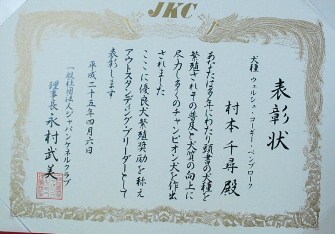 JKC
表彰状
犬種 ウェルシュ・コーギー・ペンブローク
村本千尋殿
あなたは多年にわたり頭書の犬種を
繁殖されその普及と犬質の向上に
尽力し多くのチャンピオン犬を作出
されました
ここに優良犬繁殖奨励を称え
アウトスタンディング・ブリーダーとして
表彰します
平成二十五年四月六日
一般社団法人ジャパンケネルクラブ
理事長 永村武美